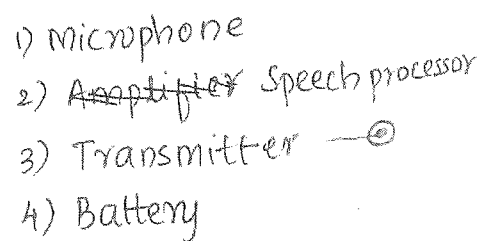 1) Microphone
2) Amplifier Speech processor
3) Transmitter
4) Battery